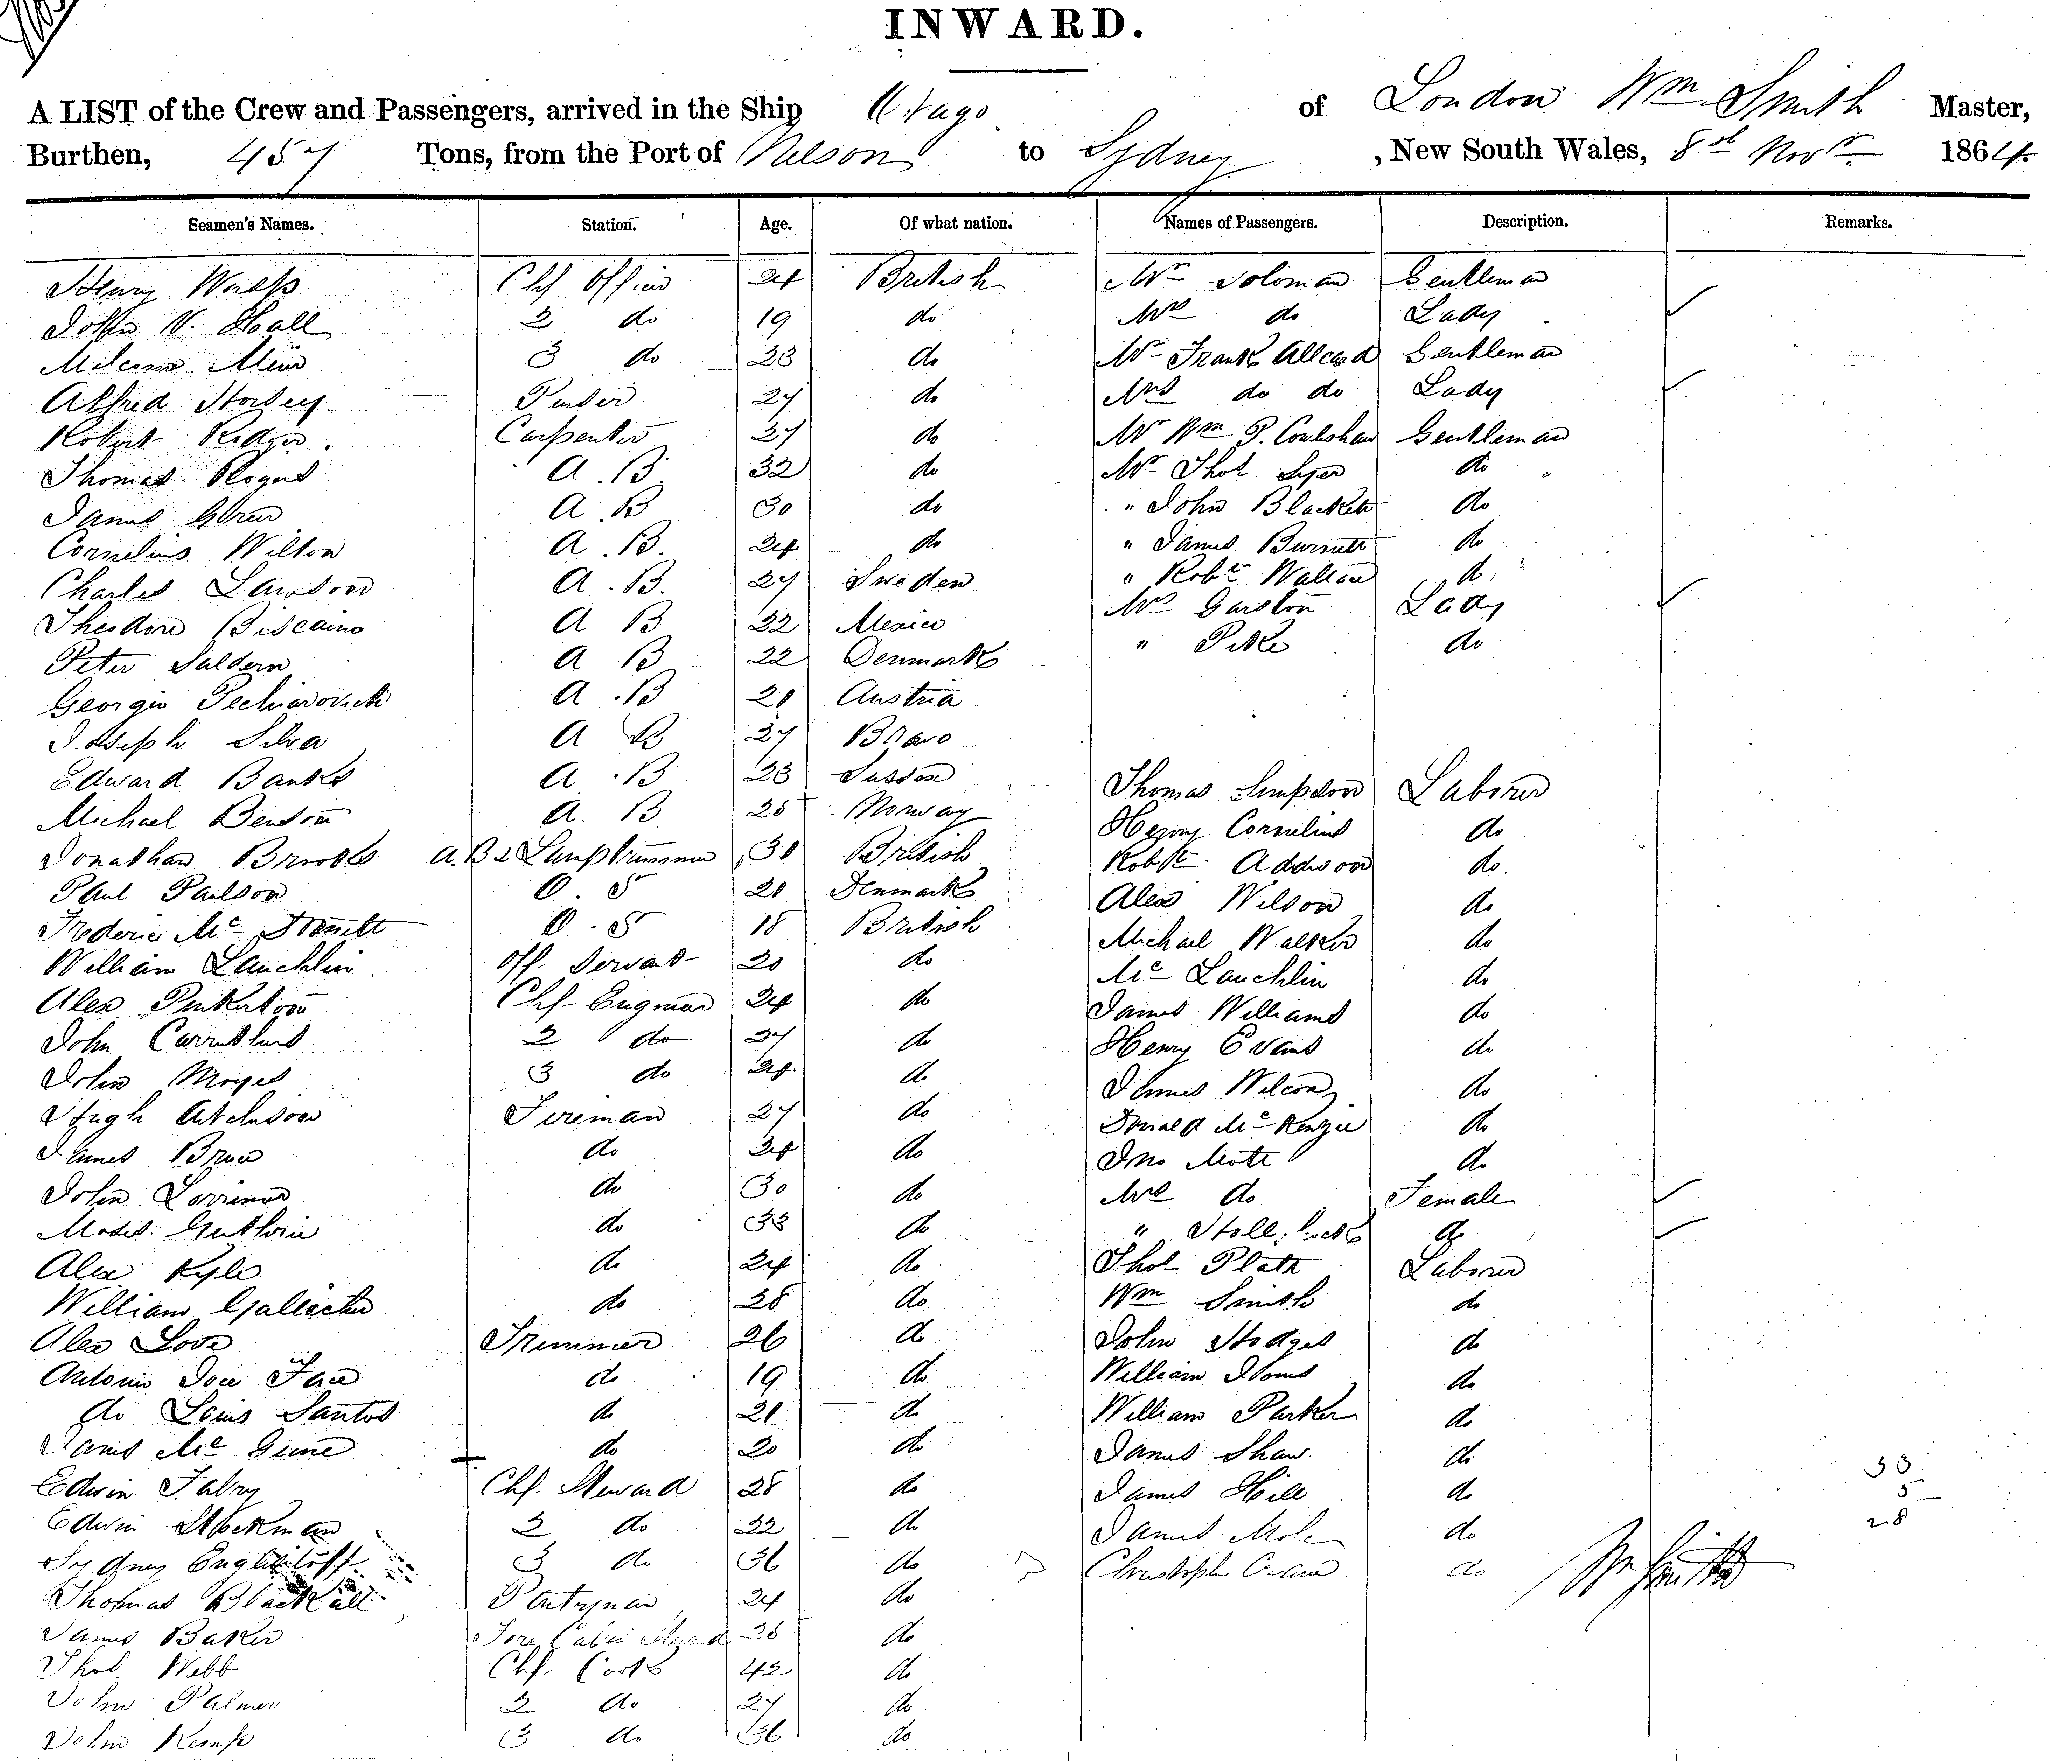 INWARD.
A LIST of the Crew and Passengers, arrived in the Ship Otago of London Wm Smith Master,
Burthen, 457 Tons, from the Port of Nelson to Sydney, New South Wales, 8th Novr 1864.
Seamen's Names. Station. Age. Of what nation. Names of Passengers. Description. Remarks.
Henry Chf Officer 24 British Mr Soloman Gentleman
John V. Hall 2 do 19 do Mrs do Lady
Muir 3 do 23 do Mr Frank Gentleman
Alfred 27 do Mrs do do Lady
Robert Carpenter 27 do Mr Wm P. Gentleman
Thomas A. B 32 do Mr Thos do
James A. B 30 do " John Blackett do
Cornelius Wilton A. B. 24 do " James Burnett do
Charles Lawson A. B. 27 Sweden " Robt do
Theodore Biscaino A B 22 Mexico Mrs Garston Lady
Peter Saldern A B 22 Denmark " Pike do
Georgio A. B 21 Austria
Joseph Silva A B 27 Bravo
Edward Banks A. B 23 Thomas Simpson Laborer
Michael A. B 25 Norway Henry Cornelius do
Jonathan Brooks A. B & Lamptrimmer British Robt do.
Paul Paulson O. S 21 Denmark Alex Wilson do
Frederic Mc O. S 18 British Michael Walker do
William Lauchlin Off. Servant 20 do Mc Lauchlin do
Alex Pinkerton Chf Enginear 24 do James Williams do
John Carruthers 2 do 27 do Henry Evans do
John Moyes 3 do 24 do James Wilson do
Hugh Aitchison Fireman 27 do Donald McKenzie do
James do 24 do Jno Mott do
John Lorrimer do 30 do Mrs do Female
Moses Guthrie do 33 do " do
Alex Kyle do 24 do Thos Laborer
William do 28 do Wm Smith do
Alex Love Trimmer 26 do John Hodges do
Antonio do 19 do William do
do Santos do 21 do William Parker do
James Mc do 20 do James Shaw do
Edwin Chf. Steward 28 do James Hill do
33
5
28
Edwin Stockman 2 do 22 do James do
Sydney 3 do 36 do do
Wm Smith
Thomas Blackall Pantryman 24 do
James Baker Fore Cabin do
Thos. Webb Chf. Cook 42 do
John Palmer 2 do 27 do
John Kemp 3 do 36 do